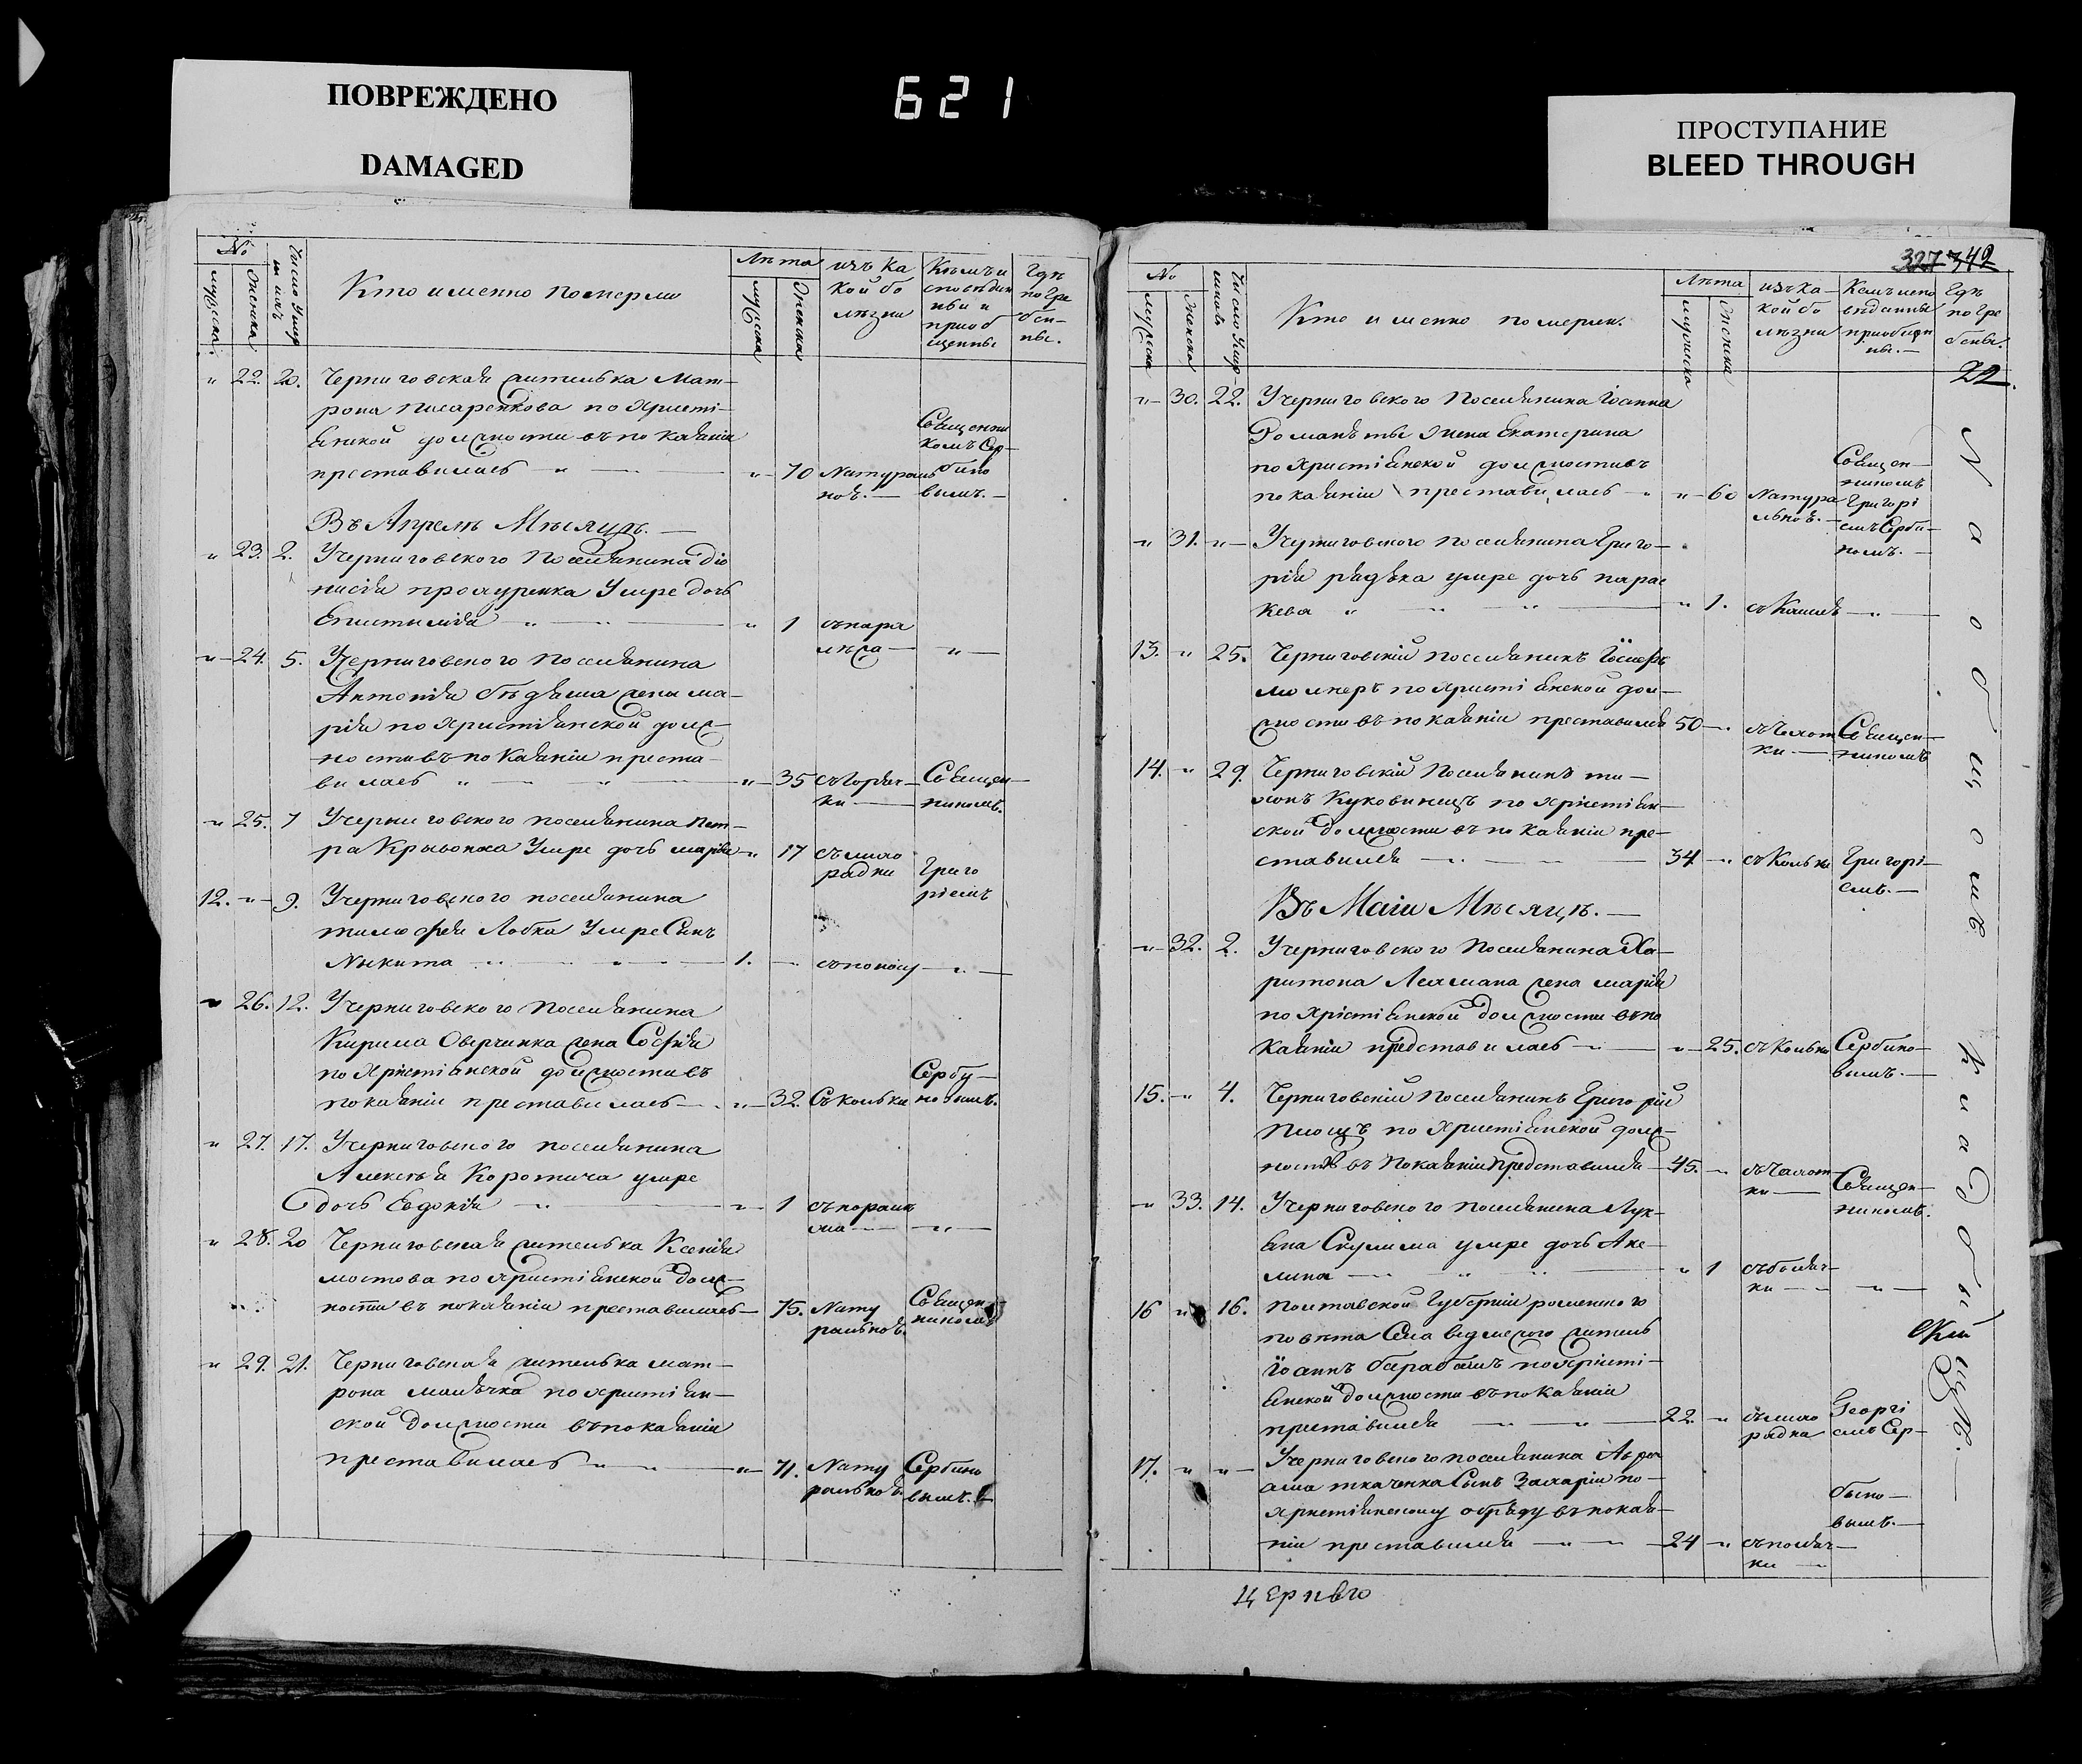 ПОВРЕЖДЕНО
DAMAGED
621
ПРОСТУПАНИЕ
BLEED THROUGH
№
мужеска
женска
Число умер
Кто именно померли
Лѣта
мужеска
женска
изъ ка
кой бо
лѣзни
Кѣмъ и
исповѣдан
ныи и
приоб
щенны
Гдѣ
погре
бен-
ны.
" 22. 20. Черниговская жителька Мат-
рона Писаренкова по христі-
янской должности въ покаяніи
преставилась " — " 70 Натураль
ноѣ. —
Священни
комъ Сер-
бино
вымъ. —
Въ Апрелѣ Мѣсяцѣ. —
" 23. 2. У черниговского поселянина Діо
нисія прохуренка умре дочь
Епистимія " — " 1 съ пара
лѣжа — " —
" 24. 5. У черниговского поселянина
Антонія Бѣдяша жена Ма-
рія по христіянской долж-
ности въ покаяніи преста-
вилась " — " 35 съ горяч-
ки —
Священ-
никомъ.
" 25. 7 У черниговского поселянина Пет-
ра Кривоноса умре дочь марія " 17 съ лихо
радки
Григо
ріемъ
12. " 9. У черниговского поселянина
тимофея Лобка умре Сынъ
Никита " — 1. — съ поносу — " —
" 26. 12. У черниговского поселянина
Кирила Оверченка жена Софія
по христіянской должности въ
покаяніи преставилась — " 32. Съ кольки
Сербу-
новымъ.
" 27. 17. У черниговского поселянина
Алексѣя Коротича умре
дочь Евдокія — " 1 съ поралѣ
жа — " —
" 28. 20 Черниговская жителька Ксенія
мостова по христіянской долж-
ности въ покаяніи преставилась — 75. Нату
ральноѣ.
Священ-
никомъ
" 29. 21. Черниговская жителька мат-
рона малѣчка по христіян-
ской должности въ покаяніи
преставилась — " — " 71. Нату
ральноѣ.
Сербино
вымъ.
327 342
№
мужеска
женска
Число умер
Кто именно померли.
Лѣта
мужеска
женска
изъ ка-
кой бо
лѣзни
Кемъ испо
веданны
приобщен
ны. —
Гдѣ
погре
бены.
22.
" 30. 22. У черниговского поселянина Іоанна
Романѣты жена Екатерина
по христіянской должности въ
покаяніи преставилась — " 60 Натура
льноѣ. —
Священ-
никомъ
Григорі
емъ Серби-
номъ. —
" 31. " — У черниговского поселянина Григо-
рія рядька умре дочь пара
кева " — " 1. съ Кашля — " —
13. " 25. Черниговскій поселянинъ Іосифъ
по христіянской дол-
жности въ покаяніи преставился 50 — " съ чахот
ки. —
Священ-
никомъ
14. " 29. Черниговскій поселянинъ ти-
хонъ Куковинецъ по христіян-
ской должности въ покаяніи пре-
ставился — " — 34 — " съ Кольки
Григорі-
емъ. —
Въ Маіи Мѣсяцѣ. —
" 32. 2. У черниговского поселянина Ха-
ритона Лехмана жена марія
по христіянской должности въ по
каяніи представилась — " — 25. съ Кольки
Сербино-
вымъ. —
15. " 4. Черниговскій поселянинъ Григорій
по христіянской долж-
ности въ Покаяніи Представился — 45. — съ чахот-
ки —
Священ-
никомъ.
" 33. 14. У черниговского поселянина Лук-
яна Скулима умре дочь Аке-
лина — " 1 съ боляч-
ки — " —
16 " 16. Полтавской Губерніи роменского
повѣта Села ведмежого житель
Іоаннъ барабашъ по христі-
янской должности въ покаяніи
преставился — " — 22. " съ лихо
радка
Георгі
емъ Сер-
17. " " — У черниговского поселянина Авра
ама ткаченка Сынъ Захарій по-
христіянскому обряду въ покая-
ніи преставился — " — 24 — " съ горяч-
ки —
бино-
вымъ. —
На общомъ кладбищѣ.